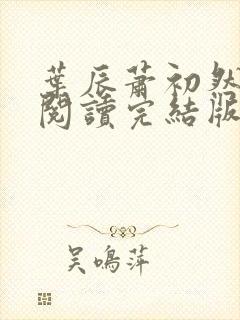 葉辰蕭初然
閱讀完結版
吳鳴萍